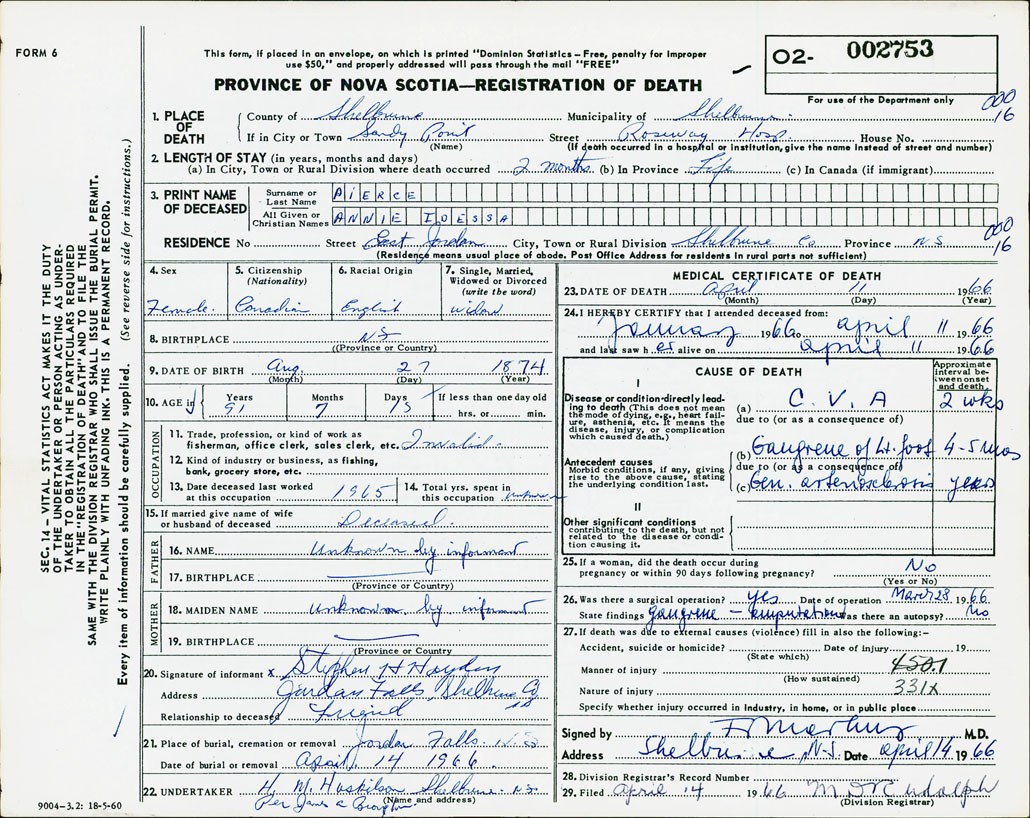 FORM 6
This form, if placed in an envelope, on which is printed "Dominion Statistics – Free, penalty for improper
use $50," and properly addressed will pass through the mail "FREE"
PROVINCE OF NOVA SCOTIA—REGISTRATION OF DEATH
02- 002753
For use of the Department only
000
16
1. PLACE OF DEATH
County of Shelburne Municipality of Shelburne
If in City or Town Sandy Point Street Roseway Hosp. House No.
(Name) (If death occurred in a hospital or institution, give the name instead of street and number)
2. LENGTH OF STAY (in years, months and days)
(a) In City, Town or Rural Division where death occurred 2 months (b) In Province Life (c) In Canada (if immigrant)
3. PRINT NAME OF DECEASED
Surname or Last Name PIERCE
All Given or Christian Names ANNIE IDESSA
RESIDENCE No Street East Jordan City, Town or Rural Division Shelburne Co Province N.S
000
16
(Residence means usual place of abode. Post Office Address for residents in rural parts not sufficient)
4. Sex
Female.
5. Citizenship
(Nationality)
Canadian
6. Racial Origin
English
7. Single, Married,
Widowed or Divorced
(write the word)
widow
8. BIRTHPLACE NS
(Province or Country)
9. DATE OF BIRTH Aug 27 1874
(Month) (Day) (Year)
10. AGE in Years Months Days If less than one day old
91 7 15 hrs. or min.
OCCUPATION
11. Trade, profession, or kind of work as
fisherman, office clerk, sales clerk, etc. Invalid
12. Kind of industry or business, as fishing,
bank, grocery store, etc.
13. Date deceased last worked
at this occupation 1965
14. Total yrs. spent in
this occupation unknown
15. If married give name of wife
or husband of deceased Deceased.
FATHER
16. NAME Unknown by informant
17. BIRTHPLACE
(Province or Country)
MOTHER
18. MAIDEN NAME unknown by informant
19. BIRTHPLACE
(Province or Country)
20. Signature of informant x Stephen H Hayden
Address Jordan Falls, Shelburne Co
NS
Relationship to deceased Friend
21. Place of burial, cremation or removal Jordan Falls N.S
Date of burial or removal April 14 1966.
22. UNDERTAKER H. M. Huskilson Shelburne N.S.
(Name and address)
Per James C
9004–3.2: 18-5-60
MEDICAL CERTIFICATE OF DEATH
23. DATE OF DEATH April 11 1966
(Month) (Day) (Year)
24. I HEREBY CERTIFY that I attended deceased from:
January 1966 to april 11 1966
and last saw her alive on april 11 1966
CAUSE OF DEATH
Approximate
interval be-
tween onset
and death
I
Disease or condition directly lead-
ing to death (This does not mean
the mode of dying, e.g., heart fail-
ure, asthenia, etc. It means the
disease, injury, or complication
which caused death.)
(a) C. V. A 2 wks
due to (or as a consequence of)
Antecedent causes
Morbid conditions, if any, giving
rise to the above cause, stating
the underlying condition last.
(b) Gangrene of Lt. foot 4-5 mos
due to (or as a consequence of)
(c) Gen. arteriosclerosis years
II
Other significant conditions
contributing to the death, but not
related to the disease or condi-
tion causing it.
25. If a woman, did the death occur during
pregnancy or within 90 days following pregnancy? No
(Yes or No)
26. Was there a surgical operation? yes Date of operation March 28 1966
State findings gangrene – amputation Was there an autopsy? No
27. If death was due to external causes (violence) fill in also the following:–
Accident, suicide or homicide? Date of injury 19
(State which)
Manner of injury 450.1
(How sustained)
Nature of injury 331X
Specify whether injury occurred in industry, in home, or in public place
Signed by M.D.
Address Shelburne, N.S. Date april 14 1966
28. Division Registrar's Record Number
29. Filed April 14 1966 M D Rudolph
(Division Registrar)
SEC. 14 – VITAL STATISTICS ACT MAKES IT THE DUTY
OF THE UNDERTAKER OR PERSON ACTING AS UNDER-
TAKER TO OBTAIN ALL THE PARTICULARS REQUIRED
IN THE "REGISTRATION OF DEATH" AND TO FILE THE
SAME WITH THE DIVISION REGISTRAR WHO SHALL ISSUE THE BURIAL PERMIT.
WRITE PLAINLY WITH UNFADING INK. THIS IS A PERMANENT RECORD.
Every item of information should be carefully supplied. (See reverse side for instructions.)